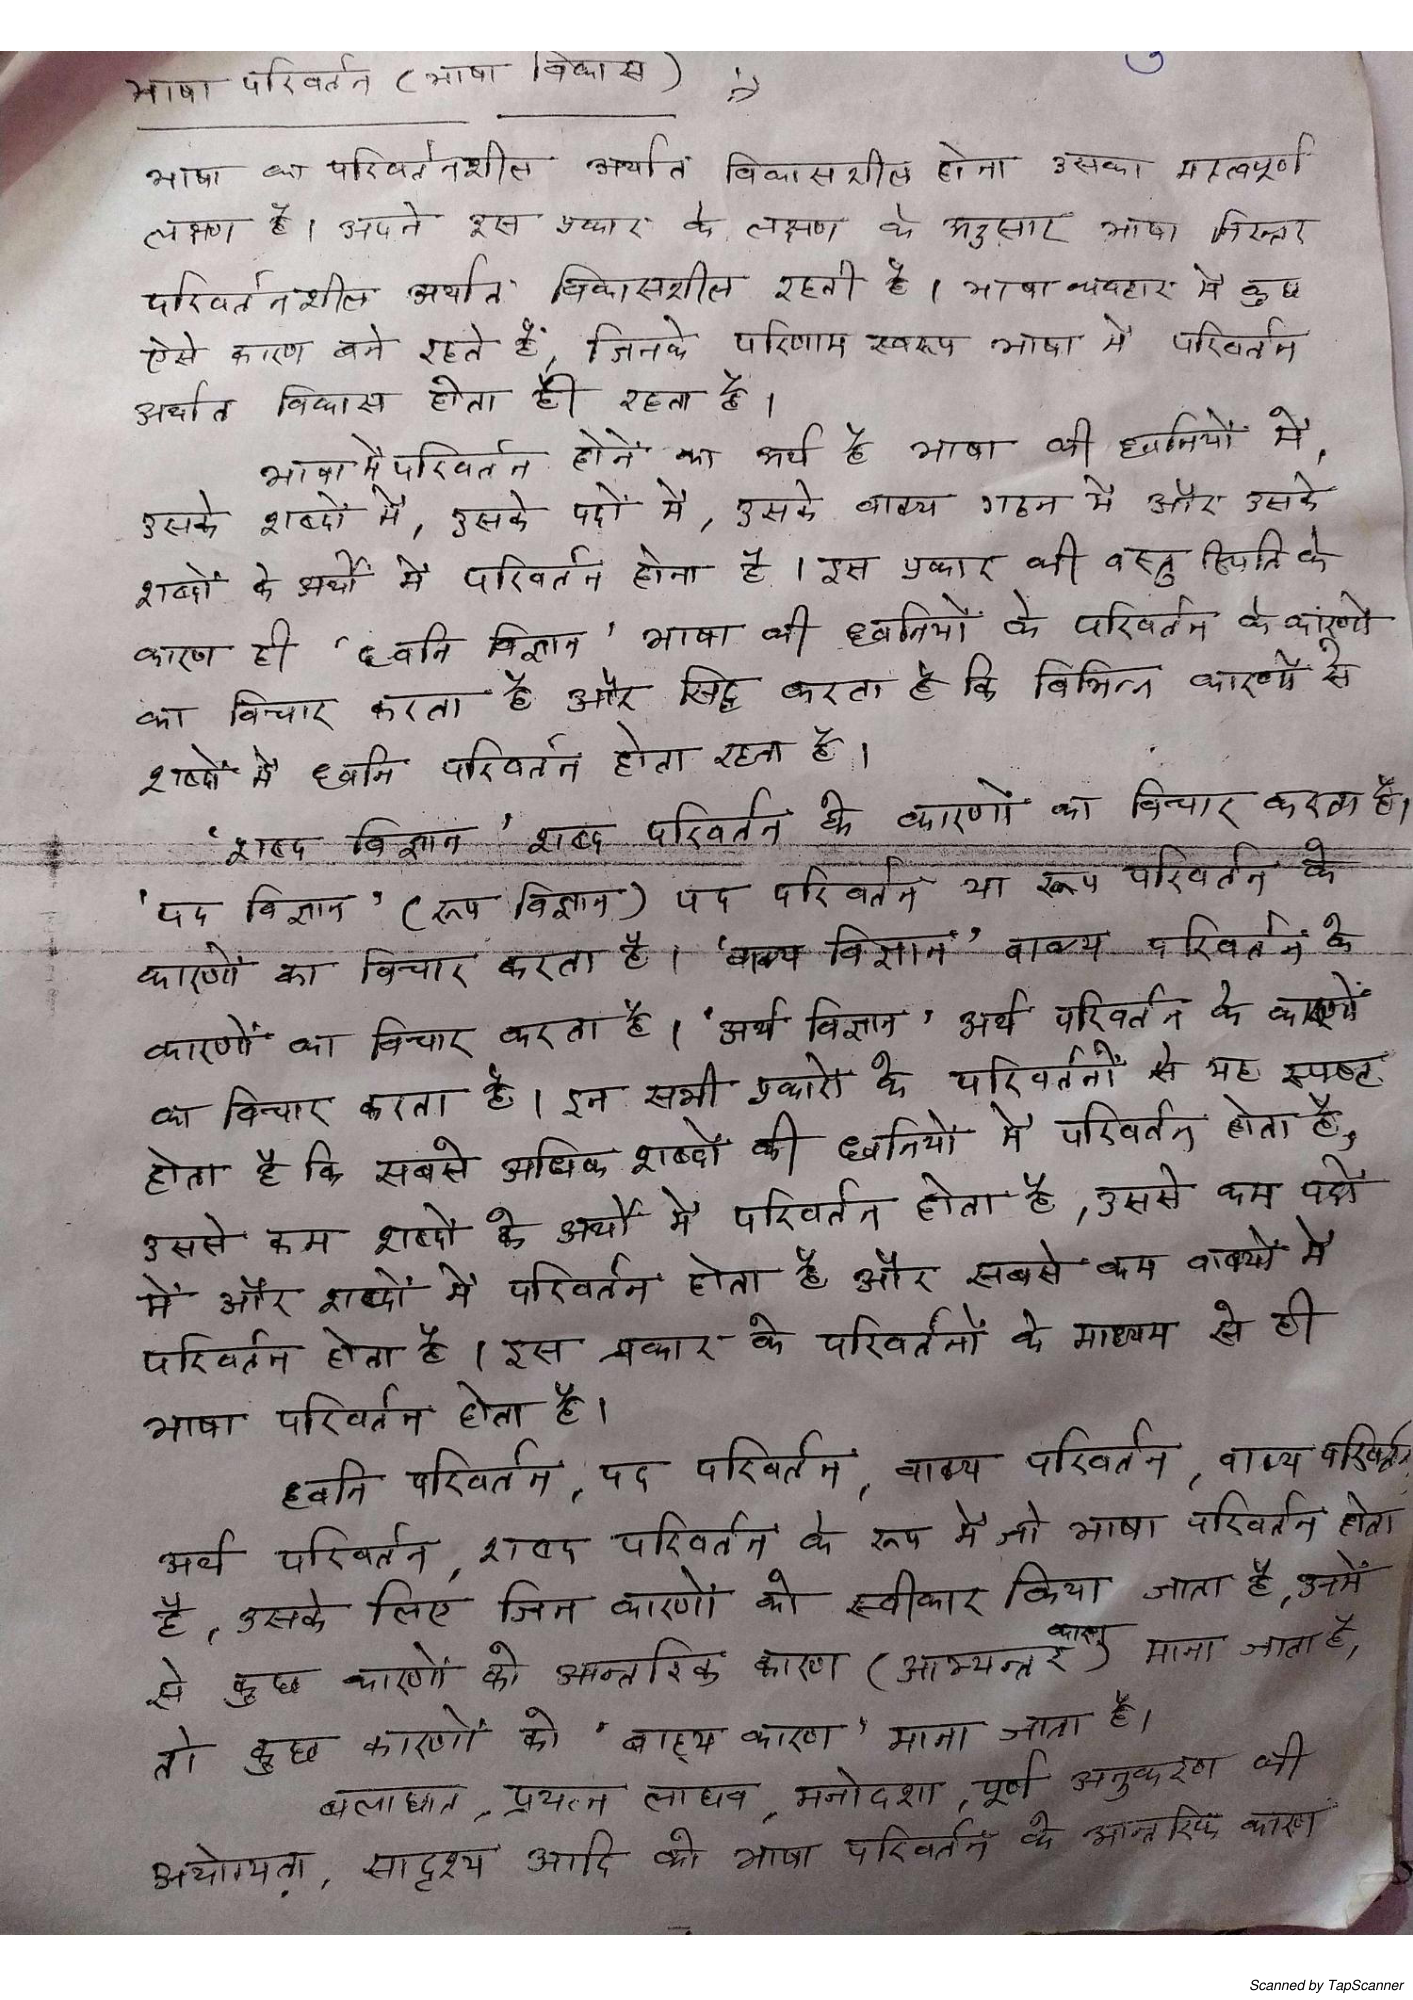 भाषा परिवर्तन (भाषा विकास) :-
भाषा का परिवर्तनशील अर्थात विकासशील होना उसका महत्वपूर्ण
लक्षण है। अपने इस प्रकार के लक्षण के अनुसार भाषा निरन्तर
परिवर्तनशील अर्थात विकासशील रहती है। भाषा व्यवहार में कुछ
ऐसे कारण बने रहते हैं, जिनके परिणाम स्वरूप भाषा में परिवर्तन
अर्थात विकास होता ही रहता है।
भाषा में परिवर्तन होनें का अर्थ है भाषा की ध्वनियों में,
उसके शब्दों में, उसके पदों में, उसके वाक्य गठन में और उसके
शब्दों के अर्थों में परिवर्तन होना है। इस प्रकार की वस्तु स्थिति के
कारण ही 'ध्वनि विज्ञान' भाषा की ध्वनियों के परिवर्तन के कारणों
का विचार करता है और सिद्ध करता है कि विभिन्न कारणों से
शब्दों में ध्वनि परिवर्तन होता रहता है।
'शब्द विज्ञान' शब्द परिवर्तन के कारणों का विचार करता है।
'पद विज्ञान' (रूप विज्ञान) पद परिवर्तन या रूप परिवर्तन के
कारणों का विचार करता है। 'वाक्य विज्ञान' वाक्य परिवर्तन के
कारणों का विचार करता है। 'अर्थ विज्ञान' अर्थ परिवर्तन के कारणों
का विचार करता है। इन सभी प्रकारों के परिवर्तनों से यह स्पष्ट
होता है कि सबसे अधिक शब्दों की ध्वनियों में परिवर्तन होता है,
उससे कम शब्दों के अर्थों में परिवर्तन होता है, उससे कम पदों
में और शब्दों में परिवर्तन होता है और सबसे कम वाक्यों में
परिवर्तन होता है। इस प्रकार के परिवर्तनों के माध्यम से ही
भाषा परिवर्तन होता है।
ध्वनि परिवर्तन, पद परिवर्तन, वाक्य परिवर्तन, वाक्य परिवर्तन,
अर्थ परिवर्तन, शब्द परिवर्तन के रूप में जो भाषा परिवर्तन होता
है, उसके लिए जिन कारणों को स्वीकार किया जाता है, उनमें
से कुछ कारणों को आन्तरिक कारण (आभ्यन्तर कारण) माना जाता है,
तो कुछ कारणों को 'बाह्य कारण' माना जाता है।
बलाघात, प्रयत्न लाघव, मनोदशा, पूर्ण अनुकरण की
अयोग्यता, सादृश्य आदि को भाषा परिवर्तन के आन्तरिक कारण
Scanned by TapScanner